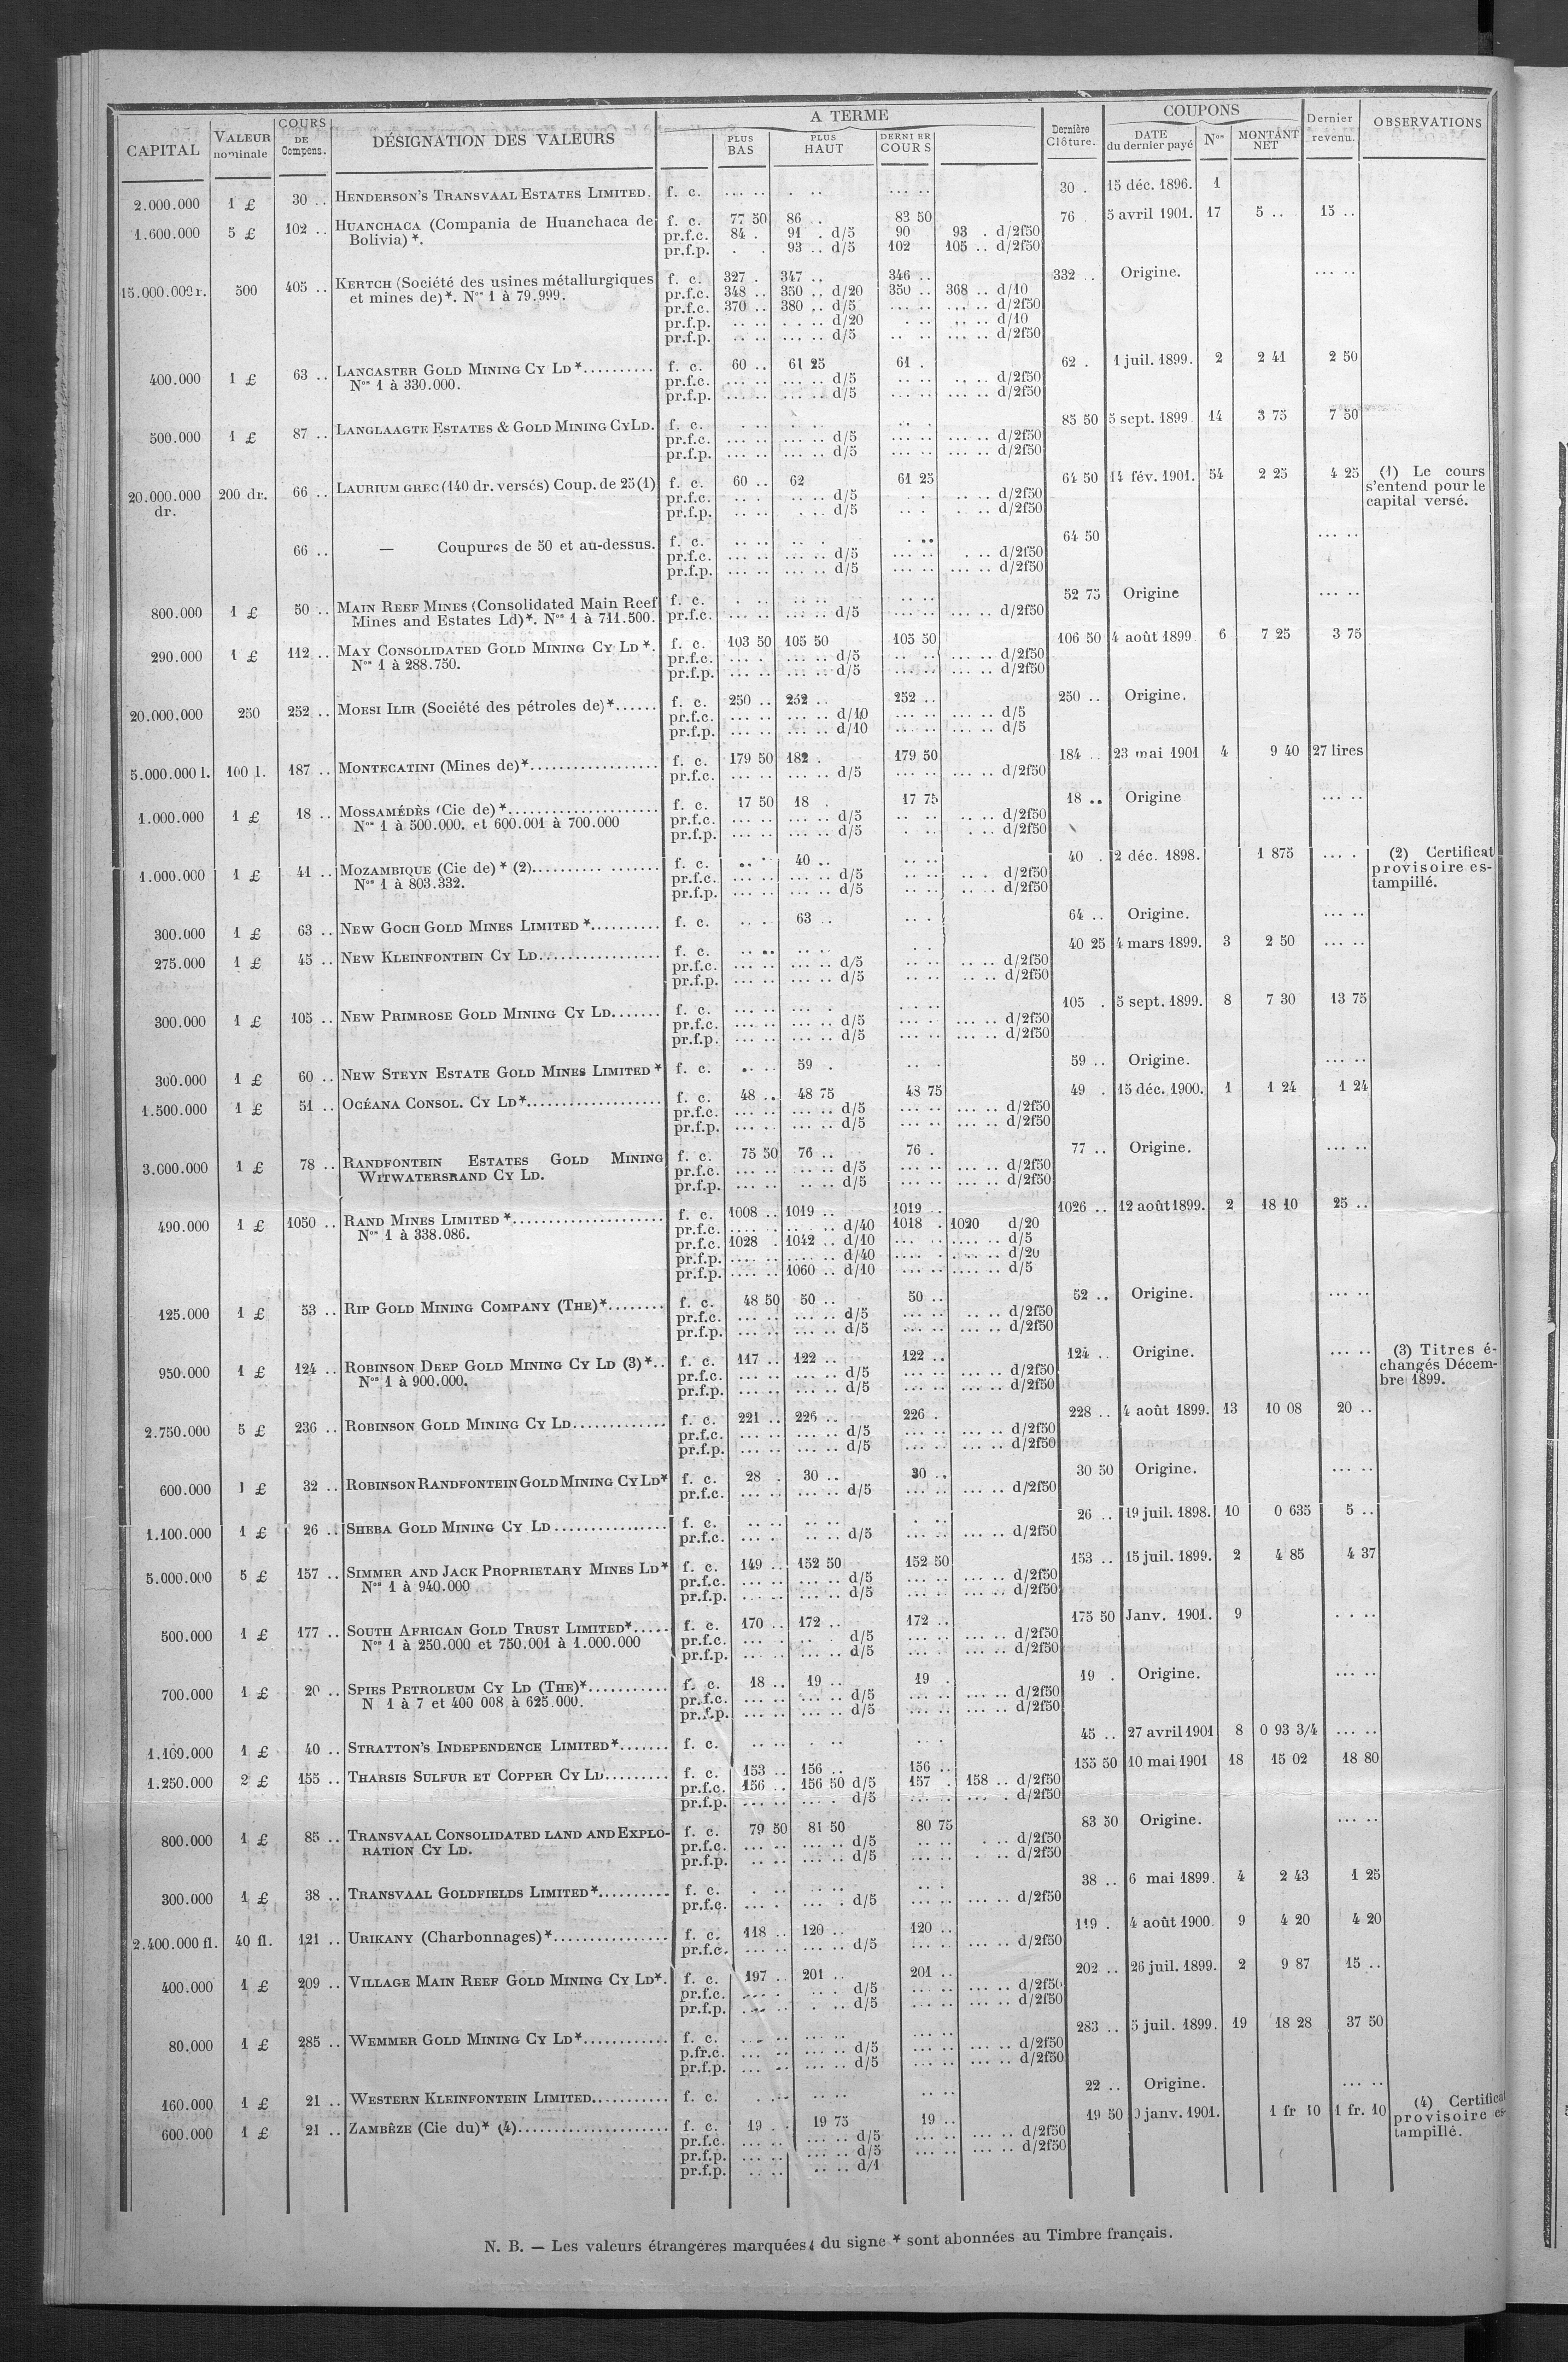 CAPITAL VALEUR nominale COURS DE Compens. DÉSIGNATION DES VALEURS A TERME PLUS BAS PLUS HAUT DERNIER COURS Dernière Clôture. COUPONS DATE du dernier payé Nos MONTANT NET Dernier revenu. OBSERVATIONS
2.000.000 1 £ 30 .. HENDERSON'S TRANSVAAL ESTATES LIMITED. f. c. ... .. . .. ... .. 30 . 15 déc. 1896. 1
1.600.000 5 £ 102 .. HUANCHACA (Compania de Huanchaca de f. c. 77 50 86 .. 83 50 76 5 avril 1901. 17 5 .. 15 ..
Bolivia)*. pr.f.c. 84 . 91 . d/5 90 93 . d/2f50
pr.f.p. . . 93 .. d/5 102 105 .. d/2f50
15.000.000 r. 500 405 .. KERTCH (Société des usines métallurgiques f. c. 327 . 347 .. 346 .. 332 .. Origine. ... ..
et mines de)*. Nos 1 à 79.999. pr.f.c. 348 .. 350 .. d/20 350 .. 368 .. d/10
pr.f.c. 370 .. 380 .. d/5 ... .. ... .. d/2f50
pr.f.p. .. .. . . .. d/20 . .. .. .. d/10
pr.f.p. .. .. ... .. d/5 .. .. ... .. d/2f50
400.000 1 £ 63 .. LANCASTER GOLD MINING CY LD*.......... f. c. 60 .. 61 25 61 . 62 . 1 juil. 1899. 2 2 41 2 50
Nos 1 à 330.000. pr.f.c. ... .. ... .. d/5 .. .. .. .. d/2f50
pr.f.p. ... .. ... .. d/5 ... .. ... .. d/2f50
500.000 1 £ 87 .. LANGLAAGTE ESTATES & GOLD MINING CY LD. f. c. . .. .. .. .. . 85 50 5 sept. 1899. 14 3 75 7 50
pr.f.c. ... .. ... .. d/5 ... .. ... .. d/2f50
pr.f.p. ... .. ... .. d/5 ... .. ... .. d/2f50
20.000.000 dr. 200 dr. 66 .. LAURIUM GREC (140 dr. versés) Coup. de 25 (1) f. c. 60 .. 62 61 25 64 50 14 fév. 1901. 54 2 25 4 25 (1) Le cours
s'entend pour le
capital versé.
pr.f.c. .. . .. .. d/5 . .. .. d/2f50
pr.f.p. .. .. . .. d/5 .. . . .. d/2f50
66 .. — Coupures de 50 et au-dessus. f. c. .. .. .. . . .. 64 50 ... ..
pr.f.c. ... .. ... .. d/5 ... .. . .. d/2f50
pr.f.p. ... .. ... .. d/5 ... .. ... .. d/2f50
800.000 1 £ 50 .. MAIN REEF MINES (Consolidated Main Reef f. c. . .. .. .. .. .. 52 75 Origine ... ..
Mines and Estates Ld)*. Nos 1 à 711.500. pr.f.c. ... .. ... .. d/5 ... .. ... .. d/2f50
290.000 1 £ 112 .. MAY CONSOLIDATED GOLD MINING CY LD*. f. c. 103 50 105 50 105 50 106 50 4 août 1899 6 7 25 3 75
Nos 1 à 288.750. pr.f.c. ... . ... .. d/5 .. .. ... .. d/2f50
pr.f.p. ... .. ... .. d/5 ... .. ... .. d/2f50
20.000.000 250 252 .. MOESI ILIR (Société des pétroles de)*...... f. c. 250 .. 252 .. 252 .. 250 .. Origine. ... ..
pr.f.c. ... .. ... .. d/10 ... .. ... .. d/5
pr.f.p. ... .. ... .. d/10 ... .. ... .. d/5
5.000.000 l. 100 l. 187 .. MONTECATINI (Mines de)*.................. f. c. 179 50 182 . 179 50 184 .. 23 mai 1901 4 9 40 27 lires
pr.f.c. ... .. ... .. d/5 ... .. ... .. d/2f50
1.000.000 1 £ 18 .. MOSSAMÉDÈS (Cie de)*..................... f. c. 17 50 18 . 17 75 18 .. Origine ... ..
Nos 1 à 500.000. et 600.001 à 700.000 pr.f.c. ... .. ... .. d/5 .. .. .. .. d/2f50
pr.f.p. ... .. ... .. d/5 . .. . .. d/2f50
1.000.000 1 £ 41 .. MOZAMBIQUE (Cie de)* (2).......... ....... f. c. .. .. 40 .. .. .. 40 . 2 déc. 1898. 1 875 ... . (2) Certificat
provisoire es-
tampillé.
Nos 1 à 803.332. pr.f.c. ... .. ... .. d/5 ... .. .. . d/2f50
pr.f.p. ... .. ... .. d/5 ... .. .. . d/2f50
300.000 1 £ 63 .. NEW GOCH GOLD MINES LIMITED*.......... f. c. .. . 63 .. .. . 64 .. Origine. ... ..
275.000 1 £ 45 .. NEW KLEINFONTEIN CY LD................. f. c. .. .. .. .. . . 40 25 4 mars 1899. 3 2 50 ... ..
pr.f.c. ... .. ... .. d/5 .. .. ... .. d/2f50
pr.f.p. ... .. ... .. d/5 .. .. .. .. d/2f50
300.000 1 £ 105 .. NEW PRIMROSE GOLD MINING CY LD....... f. c. ... .. ... . . .. 105 . 5 sept. 1899. 8 7 30 13 75
pr.f.c. ... .. ... .. d/5 ... .. ... .. d/2f50
pr.f.p. ... .. ... .. d/5 ... .. ... .. d/2f50
300.000 1 £ 60 .. NEW STEYN ESTATE GOLD MINES LIMITED* f. c. . .. 59 . .. . 59 .. Origine. ... ..
1.500.000 1 £ 51 .. OCÉANA CONSOL. CY LD*................... f. c. 48 .. 48 75 48 75 49 . 15 déc. 1900. 1 1 24 1 24
pr.f.c. ... .. ... .. d/5 ... .. ... .. d/2f50
pr.f.p. ... .. ... .. d/5 ... .. ... .. d/2f50
3.000.000 1 £ 78 .. RANDFONTEIN ESTATES GOLD MINING f. c. 75 50 76 .. 76 . 77 .. Origine. ... ..
WITWATERSRAND CY LD. pr.f.c. ... .. ... .. d/5 ... .. ... .. d/2f50
pr.f.p. ... .. .. .. d/5 ... .. ... .. d/2f50
490.000 1 £ 1050 .. RAND MINES LIMITED*..................... f. c. 1008 .. 1019 .. 1019 .. 1026 .. 12 août 1899. 2 18 10 25 ..
Nos 1 à 338.086. pr.f.c. .... .. .... .. d/40 1018 . 1020 d/20
pr.f.c. 1028 . 1042 .. d/10 ... .. .... .. d/5
pr.f.p. .... .. .... .. d/40 .... . .... .. d/20
pr.f.p. .... .. 1060 .. d/10 ... .. .... .. d/5
125.000 1 £ 53 .. RIP GOLD MINING COMPANY (THE)*........ f. c. 48 50 50 .. 50 .. 52 .. Origine. ... ..
pr.f.c. ... .. ... .. d/5 ... .. .. .. d/2f50
pr.f.p. ... .. ... .. d/5 ... .. ... .. d/2f50
950.000 1 £ 124 .. ROBINSON DEEP GOLD MINING CY LD (3)*.. f. c. 117 .. 122 .. 122 .. 124 .. Origine. ... .. (3) Titres é-
changés Décem-
bre 1899.
Nos 1 à 900.000. pr.f.c. ... .. ... .. d/5 ... .. ... .. d/2f50
pr.f.p. ... .. ... .. d/5 ... .. ... .. d/2f50
2.750.000 5 £ 236 .. ROBINSON GOLD MINING CY LD............. f. c. 221 .. 226 .. 226 . 228 .. 4 août 1899. 13 10 08 20 ..
pr.f.c. ... .. ... .. d/5 ... .. ... .. d/2f50
pr.f.p. ... .. ... .. d/5 ... .. ... .. d/2f50
600.000 1 £ 32 .. ROBINSON RANDFONTEIN GOLD MINING CY LD* f. c. 28 . 30 .. 30 .. 30 50 Origine. ... ..
pr.f.c. ... .. ... .. d/5 ... .. ... .. d/2f50
1.100.000 1 £ 26 .. SHEBA GOLD MINING CY LD................ f. c. .. .. .. .. . .. 26 .. 19 juil. 1898. 10 0 635 5 ..
pr.f.c. ... . ... .. d/5 ... .. ... .. d/2f50
5.000.000 5 £ 157 .. SIMMER AND JACK PROPRIETARY MINES LD* f. c. 149 .. 152 50 152 50 153 .. 15 juil. 1899. 2 4 85 4 37
Nos 1 à 940.000 pr.f.c. ... .. ... .. d/5 ... .. ... .. d/2f50
pr.f.p. ... .. ... .. d/5 ... .. ... .. d/2f50
500.000 1 £ 177 .. SOUTH AFRICAN GOLD TRUST LIMITED*..... f. c. 170 .. 172 .. 172 .. 175 50 Janv. 1901. 9 . . ..
Nos 1 à 250.000 et 750.001 à 1.000.000 pr.f.c. ... . .. . d/5 ... .. ... .. d/2f50
pr.f.p. ... .. ... .. d/5 ... .. ... .. d/2f50
700.000 1 £ 20 .. SPIES PETROLEUM CY LD (THE)*........... f. c. 18 .. 19 .. 19 . 19 . Origine. ... ..
N 1 à 7 et 400 008 à 625.000. pr.f.c. ... .. ... .. d/5 ... .. ... .. d/2f50
pr.f.p. ... .. ... .. d/5 ... .. ... .. d/2f50
1.100.000 1 £ 40 .. STRATTON'S INDEPENDENCE LIMITED*....... f. c. .. .. . .. .. . 45 .. 27 avril 1901 8 0 93 3/4 ... ..
1.250.000 2 £ 155 .. THARSIS SULFUR ET COPPER CY LD......... f. c. 153 .. 156 .. 156 .. 155 50 10 mai 1901 18 15 02 18 80
pr.f.c. 156 .. 156 50 d/5 157 . 158 .. d/2f50
pr.f.p. ... .. ... . d/5 ... .. ... . d/2f50
800.000 1 £ 85 .. TRANSVAAL CONSOLIDATED LAND AND EXPLO- f. c. 79 50 81 50 80 75 83 50 Origine. ... ..
RATION CY LD. pr.f.c. ... .. ... .. d/5 .. .. . .. d/2f50
pr.f.p. .. .. ... .. d/5 ... .. . .. d/2f50
300.000 1 £ 38 .. TRANSVAAL GOLDFIELDS LIMITED*.......... f. c. . .. .. .. .. . 38 .. 6 mai 1899. 4 2 43 1 25
pr.f.c. ... . ... . d/5 ... .. ... .. d/2f50
2.400.000 fl. 40 fl. 121 .. URIKANY (Charbonnages)*................ f. c. 118 .. 120 .. 120 .. 119 . 4 août 1900. 9 4 20 4 20
pr.f.c. ... .. ... .. d/5 ... .. ... .. d/2f50
400.000 1 £ 209 .. VILLAGE MAIN REEF GOLD MINING CY LD*. f. c. 197 .. 201 .. 201 .. 202 .. 26 juil. 1899. 2 9 87 15 ..
pr.f.c. ... .. .. . d/5 ... .. ... .. d/2f50
pr.f.p. ... .. . .. d/5 ... .. ... .. d/2f50
80.000 1 £ 285 .. WEMMER GOLD MINING CY LD*............ f. c. ... .. ... .. ... .. 283 .. 5 juil. 1899. 19 18 28 37 50
p.fr.c. ... .. ... .. d/5 ... .. ... .. d/2f50
pr.f.p. ... .. ... .. d/5 ... .. ... .. d/2f50
160.000 1 £ 21 .. WESTERN KLEINFONTEIN LIMITED........... f. c. . .. .. .. .. .. 22 .. Origine. ... ..
600.000 1 £ 21 .. ZAMBÈZE (Cie du)* (4)..................... f. c. 19 . . 19 75 19 .. 19 50 janv. 1901. 1 fr 10 1 fr. 10 (4) Certificat
provisoire es-
tampillé.
pr.f.c. ... .. ... .. d/5 ... .. ... .. d/2f50
pr.f.p. ... .. ... .. d/5 ... .. ... .. d/2f50
pr.f.p. .. .. .. .. d/1
N. B. — Les valeurs étrangères marquées du signe * sont abonnées au Timbre français.